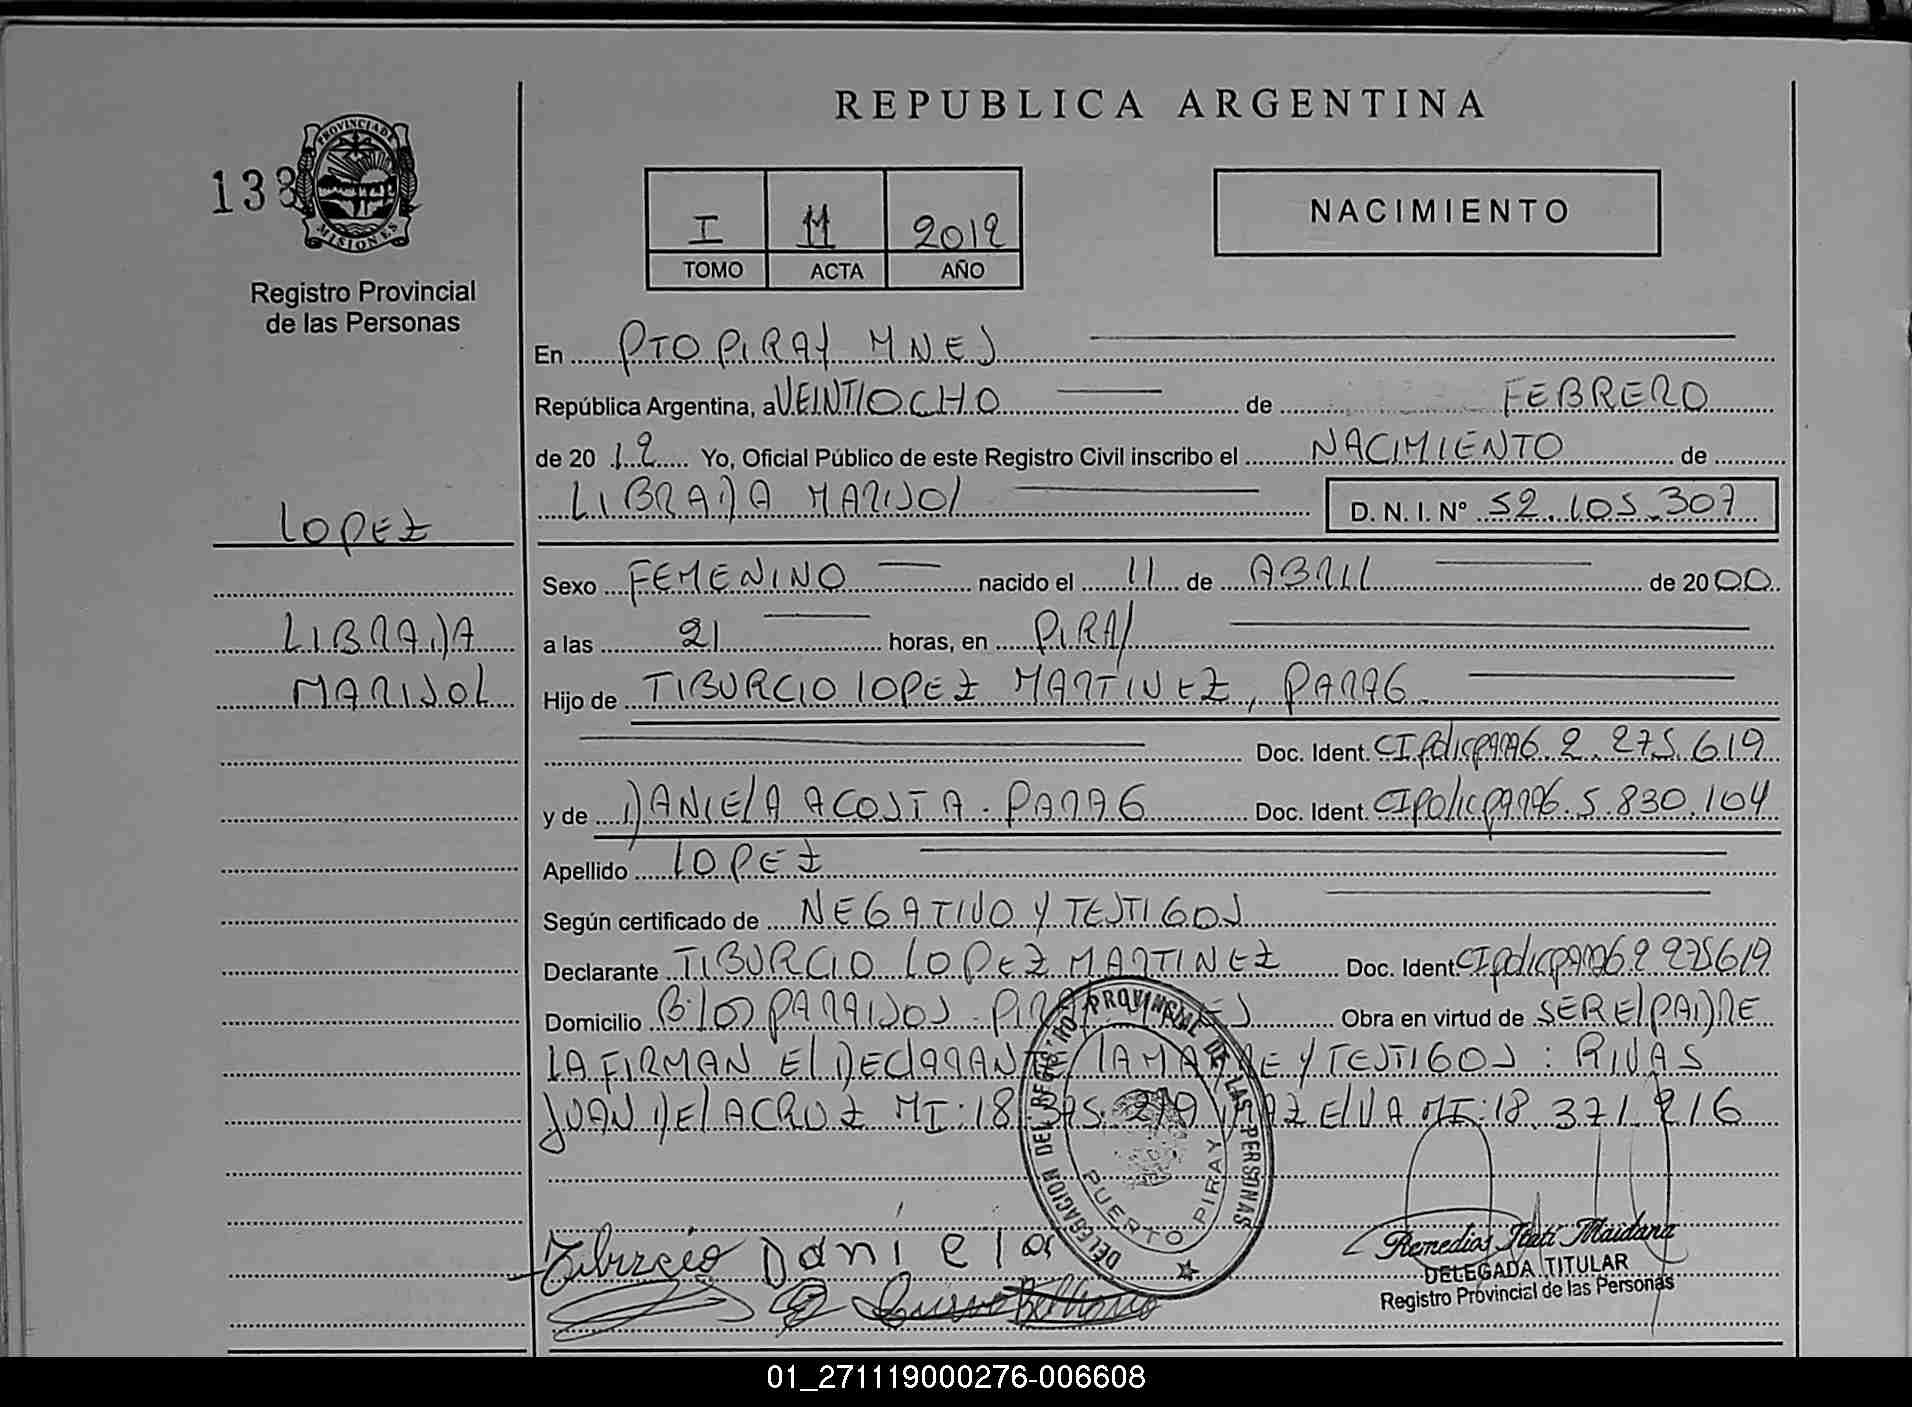 REPUBLICA ARGENTINA
PROVINCIA DE MISIONES
133
Registro Provincial
de las Personas
I 11 2012
TOMO ACTA AÑO
NACIMIENTO
En PTO PIRAY MNES
República Argentina, a VEINTIOCHO de FEBRERO
de 20 12 Yo, Oficial Público de este Registro Civil inscribo el NACIMIENTO de
LIBRADA MARISOL D. N. I. Nº 52.105.307
LOPEZ
Sexo FEMENINO nacido el 11 de ABRIL de 2000
LIBRADA
a las 21 horas, en PIRAY
MARISOL
Hijo de TIBURCIO LOPEZ MARTINEZ, PARAG
Doc. Ident. CI polic parag 2.275.619
y de DANIELA ACOSTA - PARAG Doc. Ident. CI polic parag. 5.830.104
Apellido LOPEZ
Según certificado de NEGATIVO Y TESTIGOS
Declarante TIBURCIO LOPEZ MARTINEZ Doc. Ident. CI polic parag 2 275619
Domicilio Bº LOS PARAISOS - PIRAY MNES Obra en virtud de SER EL PADRE
LA FIRMAN EL DECLARANTE LA MADRE Y TESTIGOS: RIVAS
JUAN DE LA CRUZ MI: 18.375.219 DIAZ ELVA MI: 18.371.216
DELEGACION DEL REGISTRO PROVINCIAL DE LAS PERSONAS
PUERTO PIRAY
Tiburcio Daniela
Remedios Itatí Maidana
DELEGADA TITULAR
Registro Provincial de las Personas
01_271119000276-006608